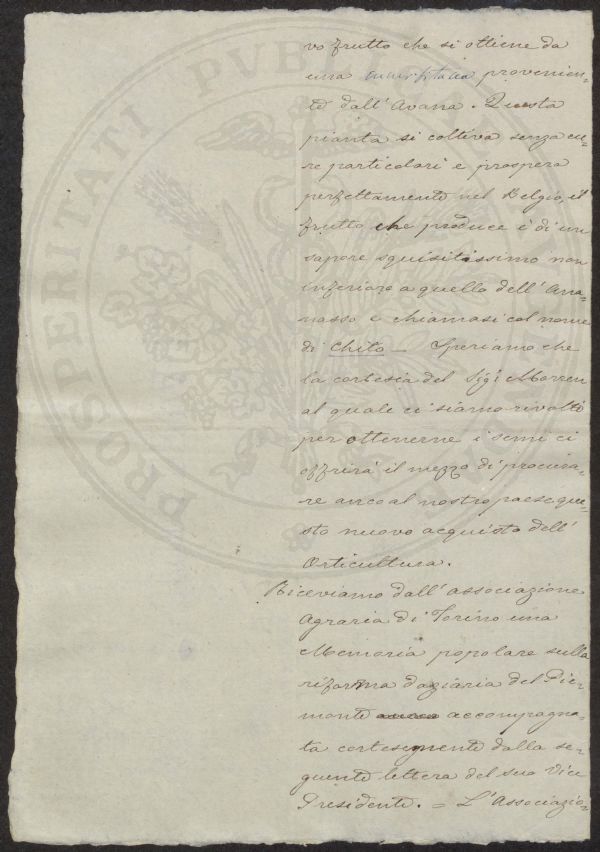 vo frutto che si ottiene da
una cucurbitacea provenien-
te dall'Avana. Questa
pianta si coltiva senza cu-
re particolari e prospera
perfettamente nel Belgio, il
frutto che produce è di un
sapore squisitissimo non
inferiore a quello dell'Ana-
nasso e chiamasi col nome
di Chito _ Speriamo che
la cortesia del Sigr Morren
al quale ci siamo rivolti
per ottenerne i semi ci
offrirà il mezzo di procura-
re anco al nostro paese que-
sto nuovo acquisto dell'
Orticultura.
Riceviamo dall'associazione
Agraria di Torino una
Memoria popolare sulla
riforma daziaria del Pie-
monte accompagna-
ta cortesemente dalla se-
guente lettera del suo Vice
Presidente. = L'Associazio-
PROSPERITATI PVBLICAE